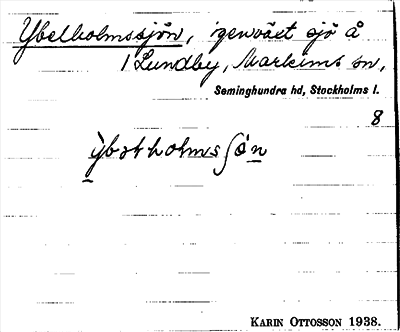 Ybelholmssjön, igenväxt sjö å
1 Lundby, Markims sn,
Seminghundra hd, Stockholms l.
8
Karin Ottosson 1938.